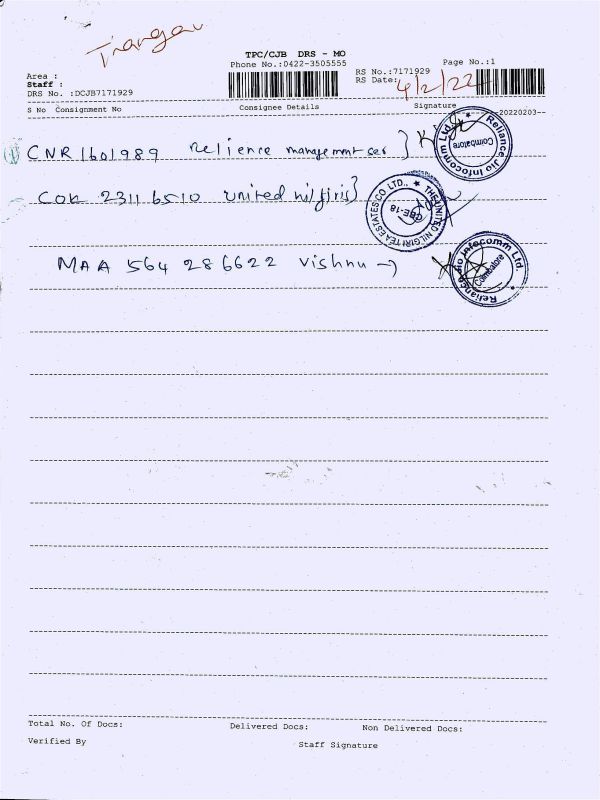 TPC/CJB DRS - MO
Phone No.:0422-3505555
Page No.:1
Area :
RS No.:7171929
Staff :
RS Date: 4/2/22
DRS No. :DCJB7171929
S No Consignment No Consignee Details Signature
20220203
CNR 1601989 Relience management ser
Reliance Jio Infocomm Ltd. Coimbatore
COK 2311 6510 united nilgiris
THE UNITED NILGIRI TEA ESTATES CO. LTD., CBE-18
MAA 564 286622 Vishnu
Reliance Jio Infocomm Ltd. Coimbatore
Total No. Of Docs: Delivered Docs: Non Delivered Docs:
Verified By Staff Signature